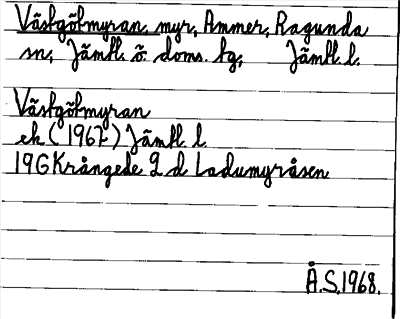 Västgötmyran, myr, Ammer, Ragunda
sn, Jämtl. ö. doms. tg, Jämtl. l.
Västgötmyran
ek (1967) Jämtl. l.
19G Krångede 9 d Ladumyråsen
Å.S. 1968.